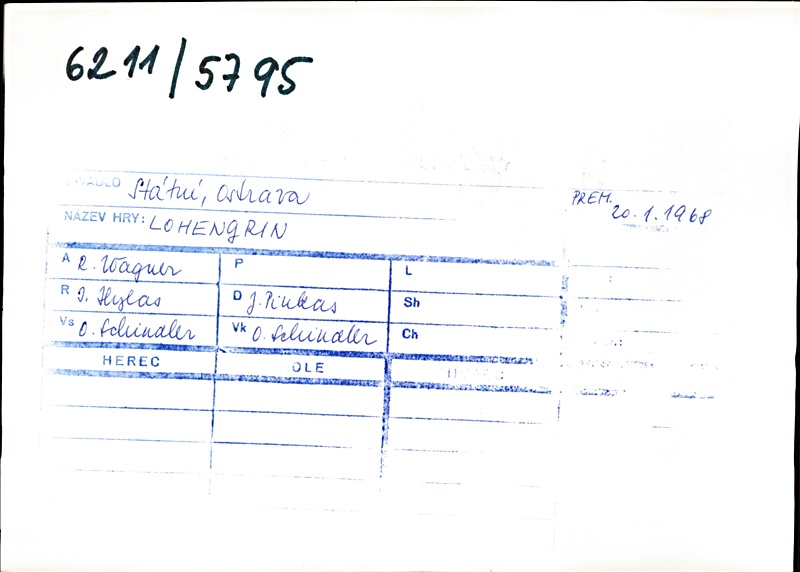 6211/5795
DIVADLO Státní, Ostrava
PREM. 20.1.1968
NÁZEV HRY: LOHENGRIN
A R. Wagner P L
R I. Hylas D J. Pinkas Sh
Vs O. Schindler Vk O. Schindler Ch
HEREC OLE